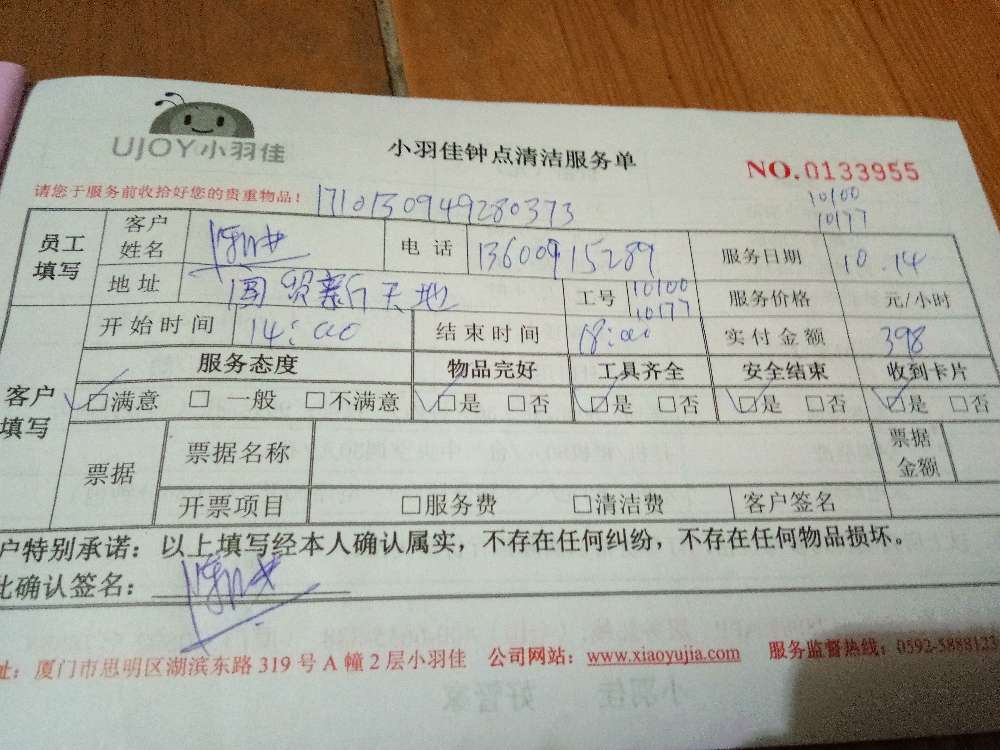 UJOY小羽佳
小羽佳钟点清洁服务单
NO.0133955
请您于服务前收拾好您的贵重物品！ 1710130949280373
10100
10177
员工填写 客户姓名 电话 13600915289 服务日期 10.14
地址 国贸新天地 工号 10100 10177 服务价格 元/小时
开始时间 14:00 结束时间 18:00 实付金额 398
客户填写 服务态度 物品完好 工具齐全 安全结束 收到卡片
☑满意 □一般 □不满意 ☑是 □否 ☑是 □否 ☑是 □否 ☑是 □否
票据 票据名称 票据金额
开票项目 □服务费 □清洁费 客户签名
户特别承诺：以上填写经本人确认属实，不存在任何纠纷，不存在任何物品损坏。
此确认签名：
址：厦门市思明区湖滨东路319号A幢2层小羽佳 公司网站：www.xiaoyujia.com 服务监督热线：0592-5888123